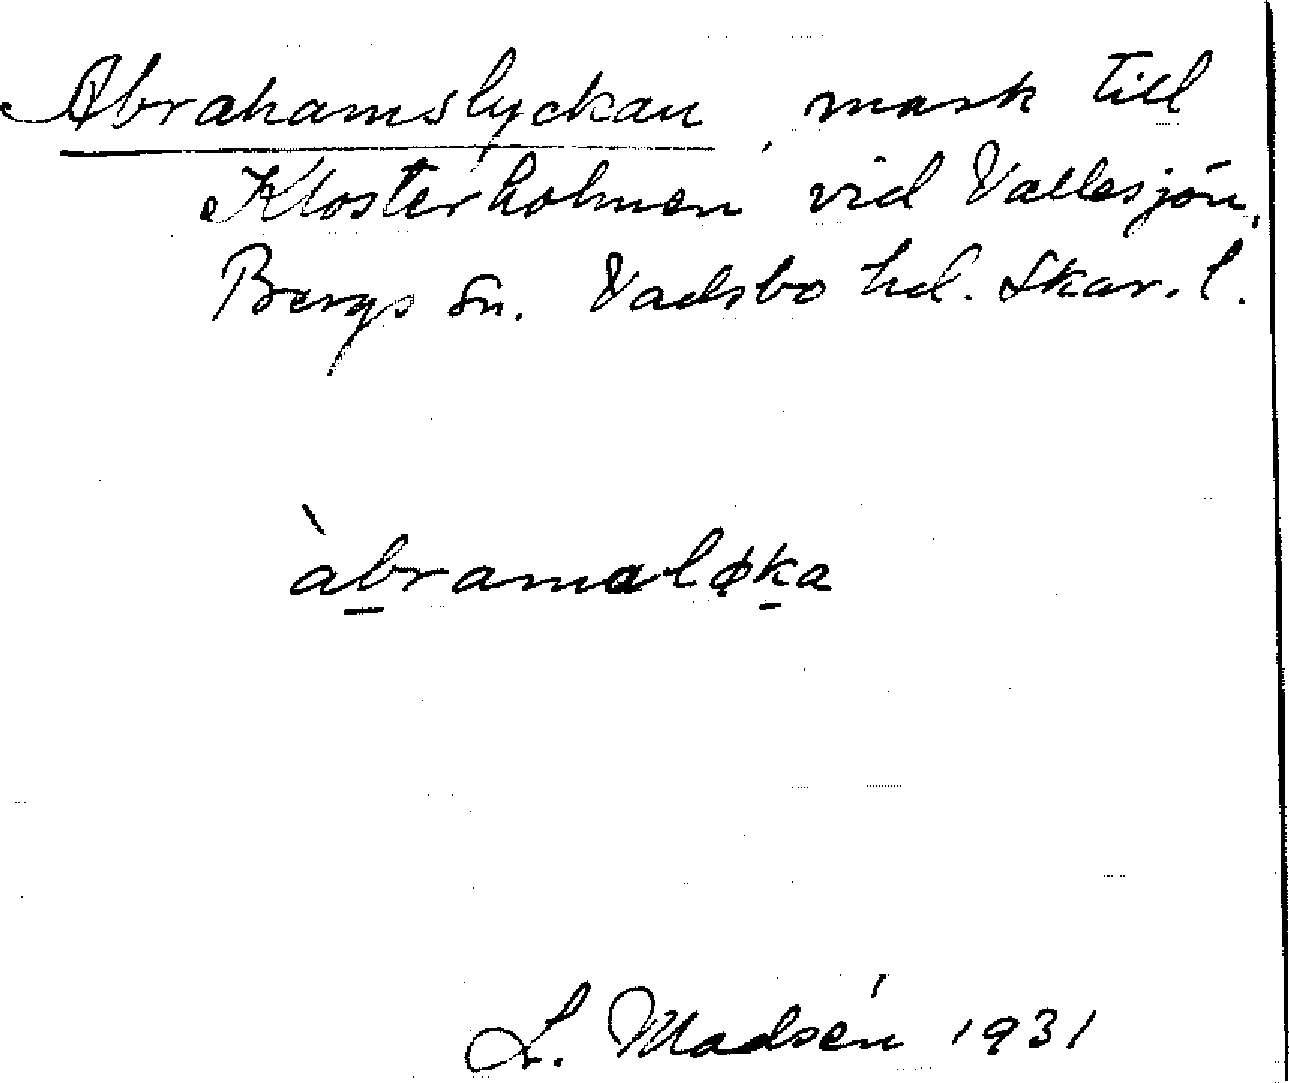 Abrahamslyckan, mark till
Klosterholmen vid Vallesjön,
Bergs sn. Vadsbo hd. Skar. l.
àbramaløka
L. Madsén 1931